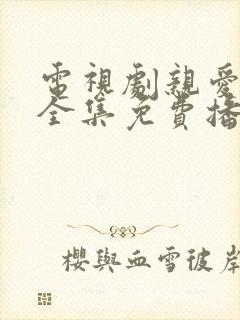 電視劇親愛
全集免費播
櫻與血雪彼岸